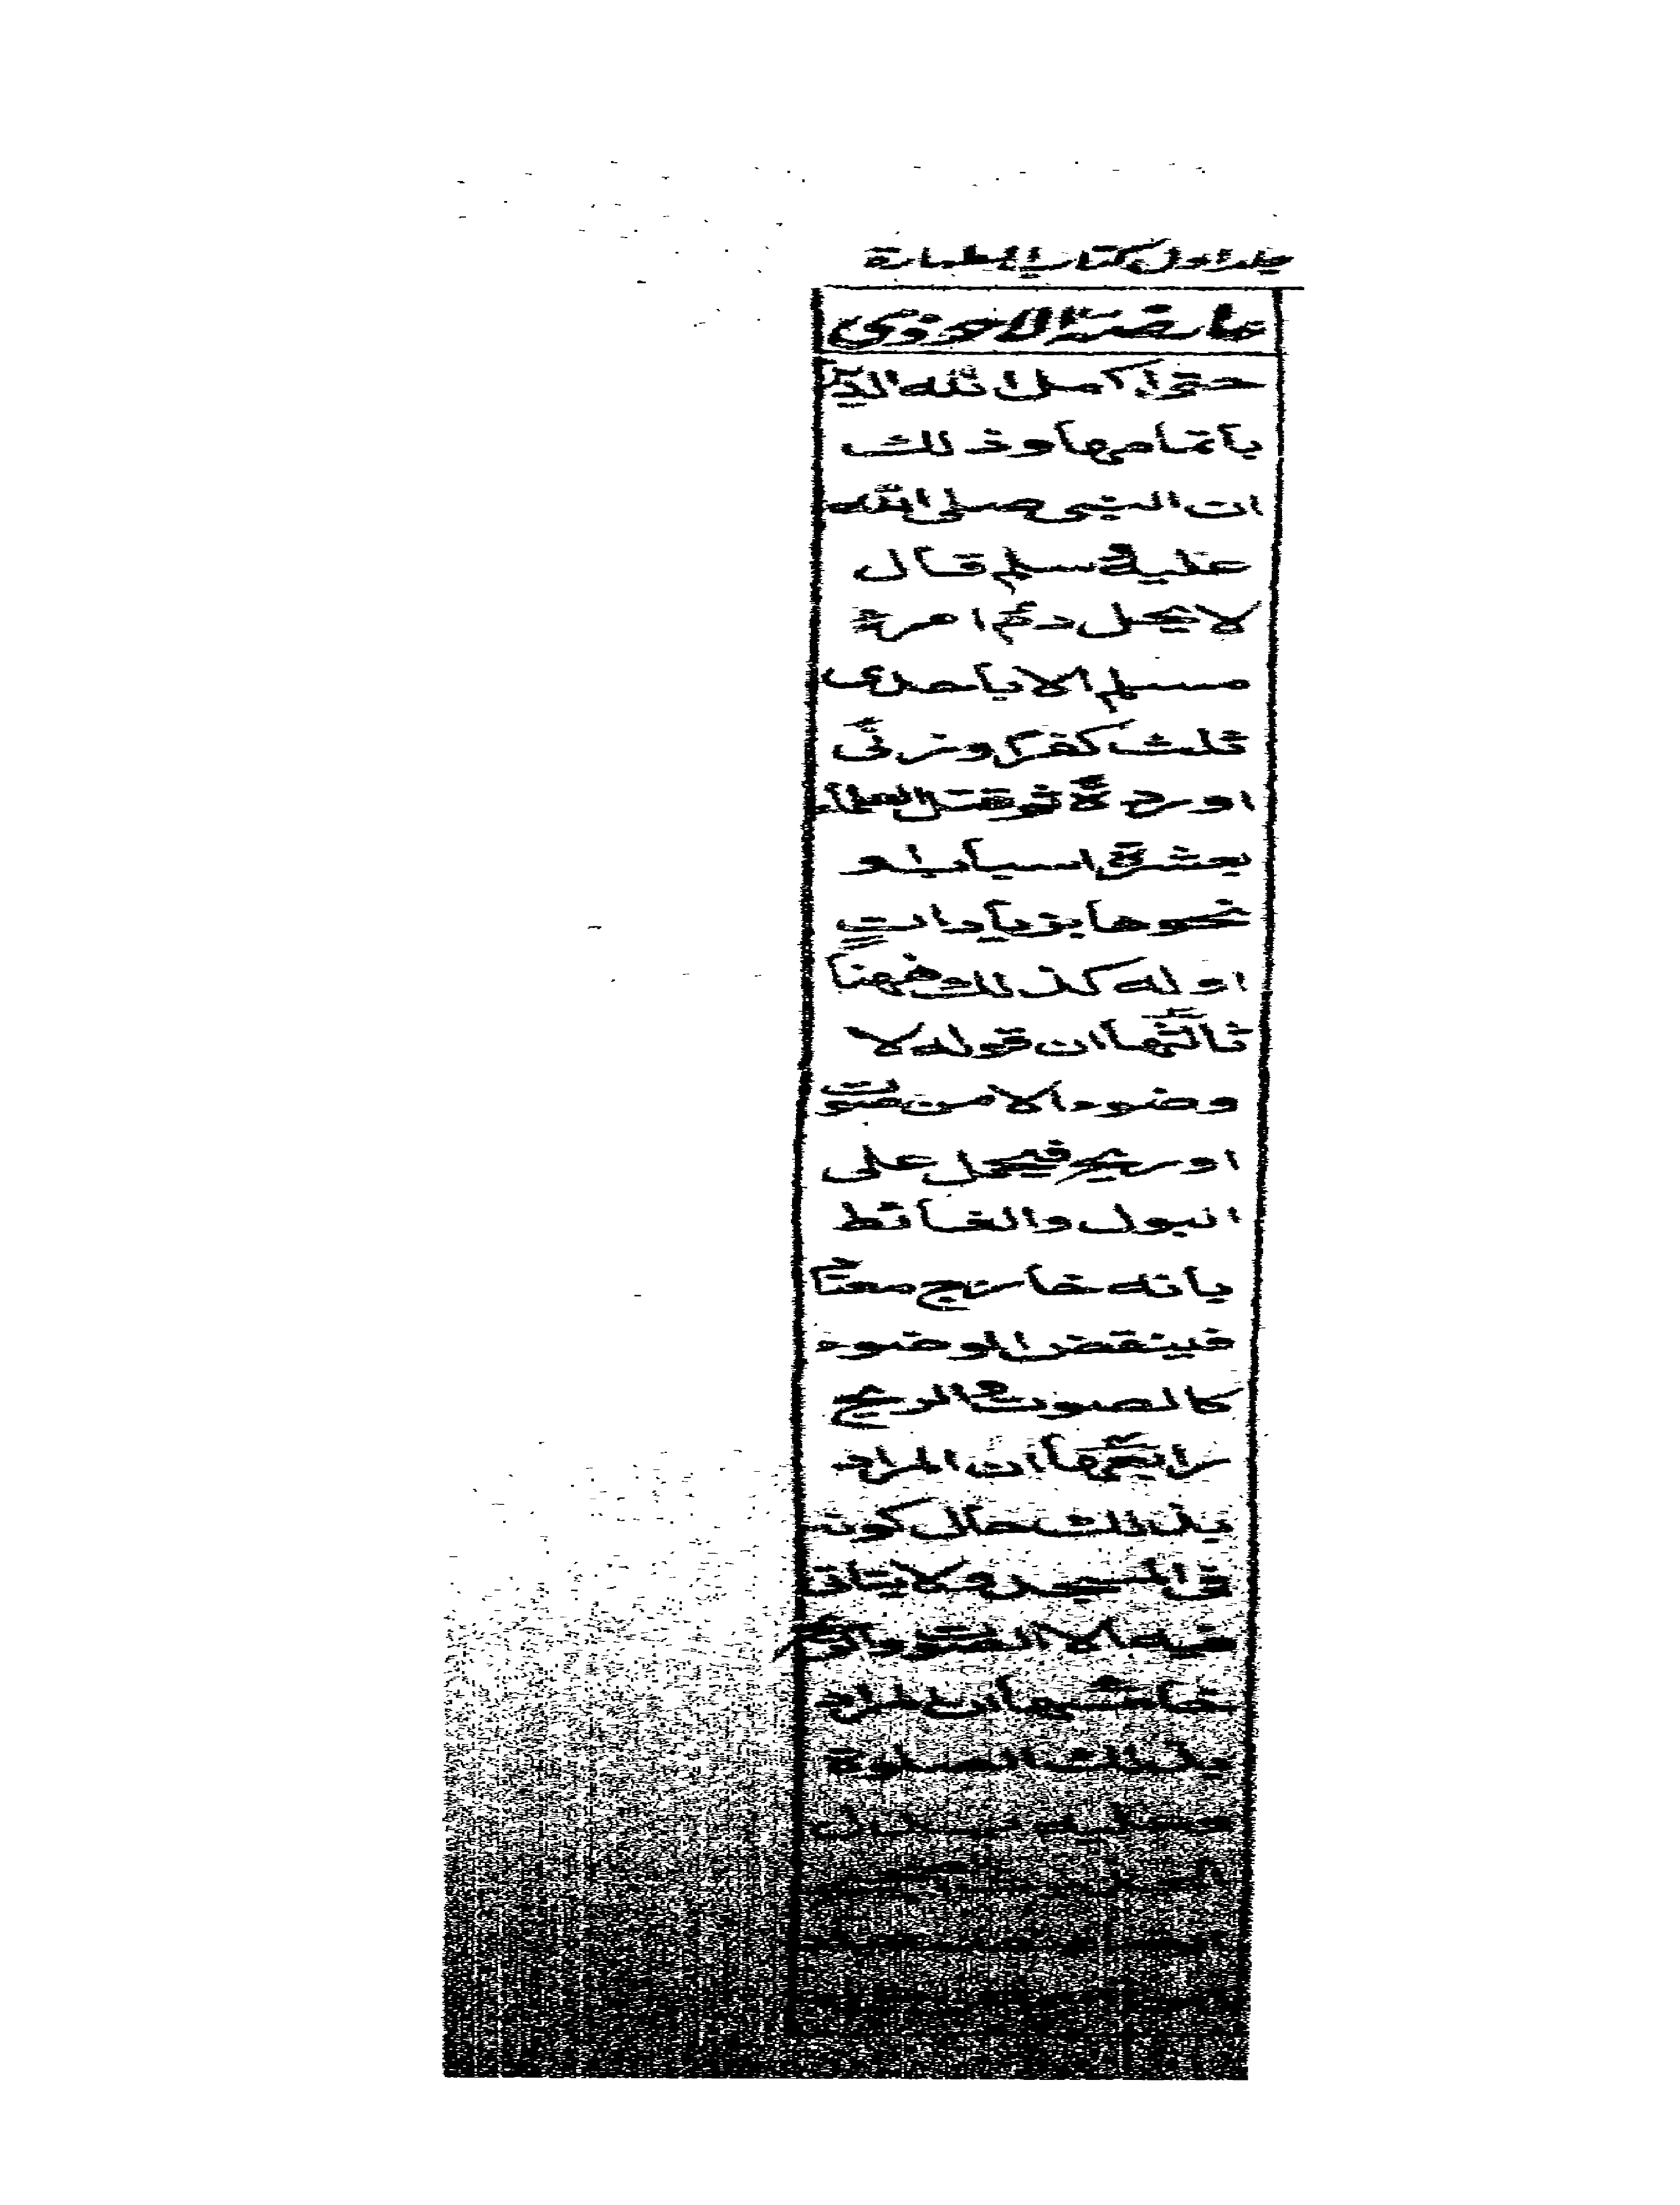 جلد اول كتاب الطهارة
عارضة الاحوذي
حتى اكمل الله الدين
بأتمامها وذلك
ان النبي صلى الله
عليه وسلم قال
لا يحل دم امرئ
مسلم الا باحدى
ثلث كفر وزنى
او ردة ثم قتل العلماء
بعشرة اسباب او
نحوها بزيادات
اوله كذلك فههنا
ثالثها ان قوله لا
وضوء الا من صوت
او ريح فيحمل على
البول والغائط
بانه خارج معتاد
فينقض الوضوء
كالصوت والريح
رابعها ان المراد
بذلك حال كونه
في المسجد ولا يتاتى
فيه الا الصوت والريح
خامسها ان المراد
بذلك الصلوة
وعليه يدل